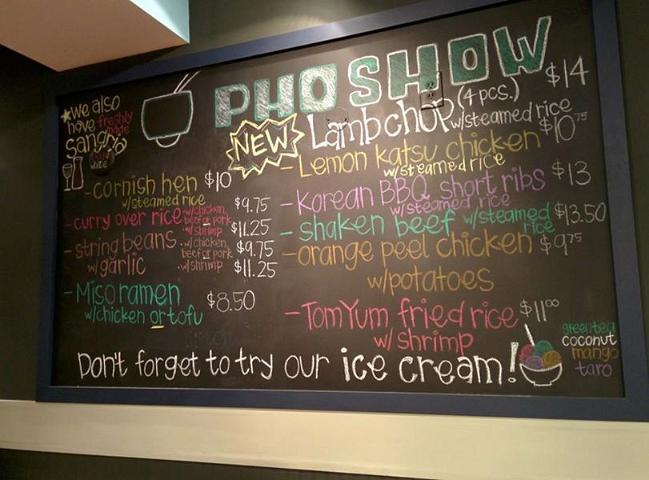 PHO SHOW
*we also
have freshly
made
sangria
white
NEW
Lambchop (4 pcs.) $14
w/steamed rice
- Lemon katsu chicken $10.75
w/steamed rice
- Korean BBQ short ribs $13
w/steamed rice
- shaken beef w/steamed rice $13.50
- orange peel chicken $9.75
w/potatoes
- Tom Yum fried rice $11.00
w/ shrimp
- cornish hen $10
w/steamed rice
- curry over rice w/chicken, beef or pork $9.75
w/shrimp $11.25
- string beans w/chicken, beef or pork $9.75
w/garlic w/shrimp $11.25
- Miso ramen $8.50
w/chicken or tofu
Don't forget to try our ice cream!
green tea
coconut
mango
taro